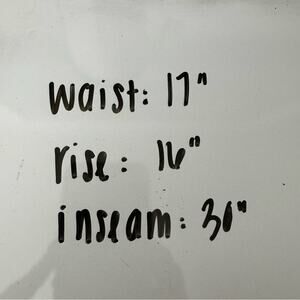 waist: 17"
rise: 16"
inseam: 30"